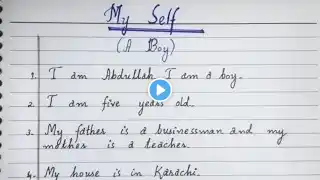 My Self
(A Boy)
1. I am Abdullah I am a boy.
2. I am five years old.
3. My father is a businessman and my
mother is a teacher.
4. My house is in Karachi.